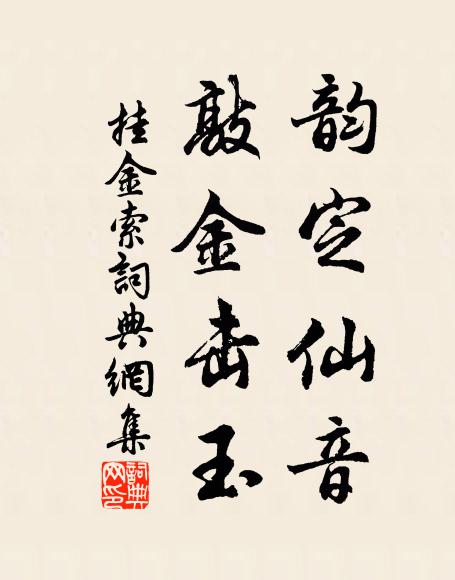 韵定仙音
敲金击玉
挂金索詞典網集
詞典网印